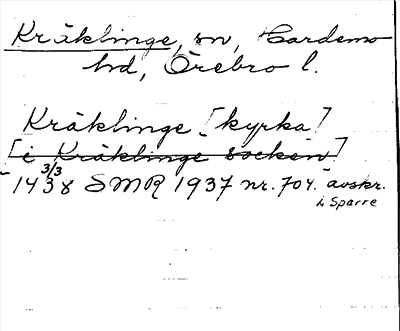 Kräklinge, sn, Hardemo
hd, Örebro l.
Kräklinge [kyrka]
[i Kräklinge socken]
3/3
1438 SMR 1937 nr. 704. avskr.
i Sparre